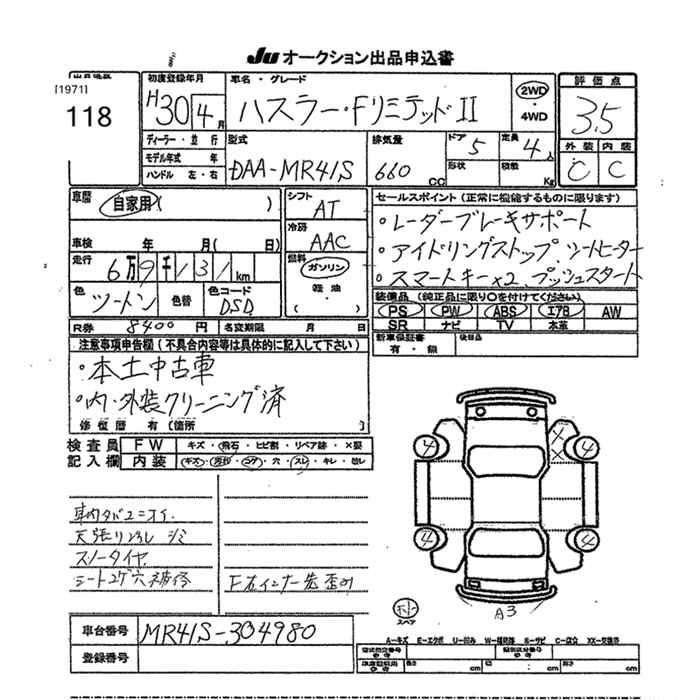 Ju オークション出品申込書
[1971]
118
初度登録年月
H30 4月
車名・グレード
ハスラー・FリミテッドII
2WD
・
4WD
評価点
3.5
ディーラー・並行
モデル年式 年
ハンドル 左・右
型式
DAA-MR41S
排気量
660 CC
ドア
5
形状
定員
4人
積載
Kg
外装 内装
C C
車歴
自家用( )
シフト
AT
セールスポイント(正常に機能するものに限ります)
・レーダーブレーキサポート
・アイドリングストップ、シートヒーター
・スマートキー×2、プッシュスタート
車検 年 月( 日)
冷房
AAC
走行
6万9千131km
燃料
ガソリン
軽油・
( )
色
ツートン
色替
色コード
DSD
装備品(純正品に限り○を付けてください)
PS PW ABS エアB AW
SR ナビ TV 本革
R券 8400円
名変期限 月 日
新車保証書
有・無
後日品
注意事項申告欄(不具合内容等は具体的に記入して下さい)
・本土中古車
・内・外装クリーニング済
修復歴 有(箇所 )
検査員
記入欄
FW キズ・飛石・ヒビ割・リペア跡・×要
内装 キズ・汚れ・コゲ・穴・スレ・キレ・凹し
車内タバコニオイ.
天張り汚れ シミ
スノータイヤ
シートコゲ穴補修
F左インナー先歪み
4 4
X
X
4 4
A3
スペア
車台番号 MR41S-304980
登録番号
A-キズ E-エクボ U-凹み W-補修跡 S-サビ C-腐食 XX-交換済
型式指定番号
類別区分番号
長さ cm 幅 cm 高さ cm